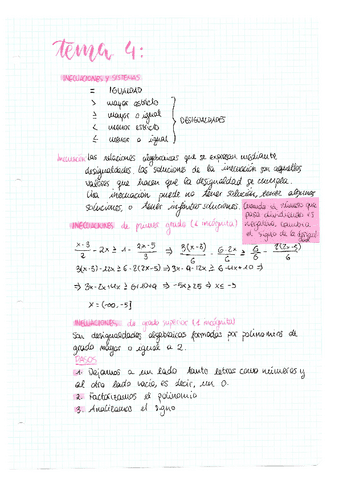 tema 4:
INECUACIONES Y SISTEMAS
= IGUALDAD
> mayor estricto
≥ mayor o igual
< menor estricto
≤ menor o igual
DESIGUALDADES
Inecuación: las relaciones algebraicas que se expresan mediante
desigualdades. las soluciones de la inecuación son aquellos
valores que hacen que la desigualdad se cumpla.
Una inecuación puede no tener solución, tener algunas
soluciones, o tener infinitas soluciones.
Cuando el número que
pasa dividiendo es
negativo, cambia
el signo de la desigualdad
INECUACIONES de primer grado (1 incógnita)
x-3/2 - 2x ≥ 1 - 2x-5/3 ⇒ 3(x-3)/6 - 6·2x/6 ≥ 6/6 - 2(2x-5)/6
3(x-3)-12x ≥ 6-2(2x-5) ⇒ 3x-9-12x ≥ 6-4x+10 ⇒
⇒ 3x-12x+4x ≥ 6+10+9 ⇒ -5x ≥ 25 ⇒ x ≤ -5
x = (-∞,-5]
INECUACIONES de grado superior (1 incógnita)
Son desigualdades algebraicas formadas por polinomios de
grado mayor o igual a 2.
PASOS
1. Dejamos a un lado tanto letras como números y
al otro lado vacío, es decir, un 0.
2. Factorizamos el polinomio
3. Analizamos el signo